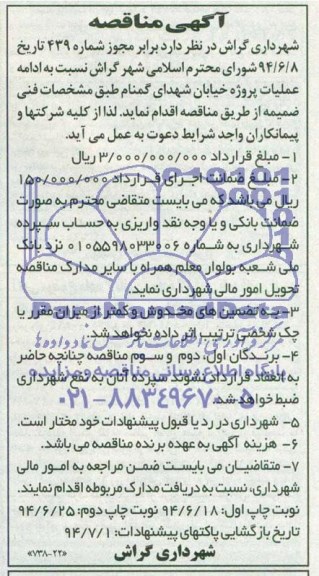 آگهی مناقصه
شهرداری گراش در نظر دارد برابر مجوز شماره ۴۳۹ تاریخ
۹۴/۶/۸ شورای محترم اسلامی شهر گراش نسبت به ادامه
عملیات پروژه خیابان شهدای گمنام طبق مشخصات فنی
ضمیمه از طریق مناقصه اقدام نماید. لذا از کلیه شرکتها و
پیمانکاران واجد شرایط دعوت به عمل می آید.
۱- مبلغ قرارداد ۳/۰۰۰/۰۰۰/۰۰۰ ریال
۲- مبلغ ضمانت اجرای قرارداد ۱۵۰/۰۰۰/۰۰۰
ریال می باشد که می بایست متقاضی محترم به صورت
ضمانت بانکی و یا وجه نقد واریزی به حساب سپرده
شهرداری به شماره ۰۱۰۵۵۹۸۰۳۳۰۰۶ نزد بانک
ملی شعبه بولوار معلم همراه با سایر مدارک مناقصه
تحویل امور مالی شهرداری نماید.
۳- به تضمین های مخدوش و کمتر از میزان مقرر یا
چک شخصی ترتیب اثر داده نخواهد شد.
۴- برندگان اول، دوم و سوم مناقصه چنانچه حاضر
به انعقاد قرارداد نشوند سپرده آنان به نفع شهرداری
ضبط خواهد شد.
۵- شهرداری در رد یا قبول پیشنهادات خود مختار است.
۶- هزینه آگهی به عهده برنده مناقصه می باشد.
۷- متقاضیان می بایست ضمن مراجعه به امور مالی
شهرداری، نسبت به دریافت مدارک مربوطه اقدام نمایند.
نوبت چاپ اول: ۹۴/۶/۱۸ نوبت چاپ دوم: ۹۴/۶/۲۵
تاریخ بازگشایی پاکتهای پیشنهادات: ۹۴/۷/۱
شهرداری گراش
«۷۳۸-۲۲»
پایگاه اطلاع رسانی مناقصه و مزایده
۰۲۱-۸۸۳۴۹۶۷۰-۵